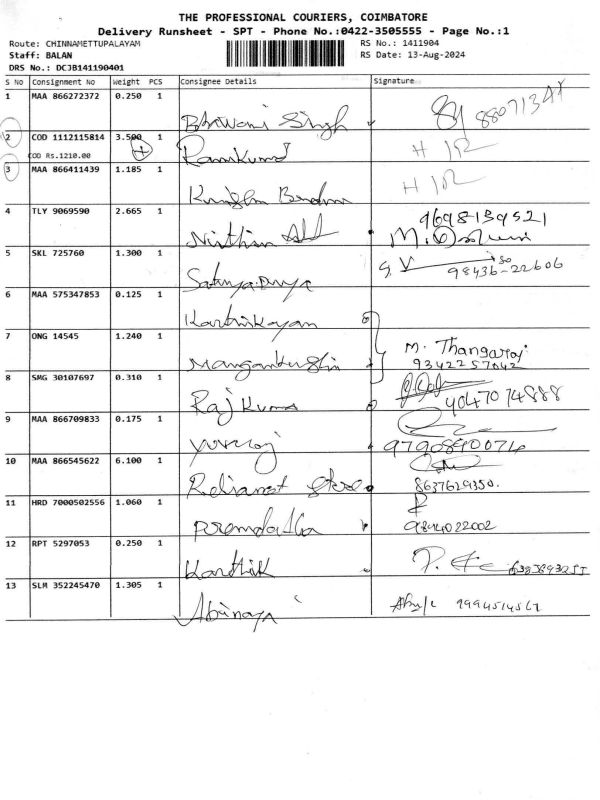 THE PROFESSIONAL COURIERS, COIMBATORE
Delivery Runsheet - SPT - Phone No.:0422-3505555 - Page No.:1
Route: CHINNAMETTUPALAYAM RS No.: 1411904
Staff: BALAN RS Date: 13-Aug-2024
DRS No.: DCJB141190401
S No Consignment No Weight PCS Consignee Details Signature
1 MAA 866272372 0.250 1
Bhwani Singh
2 COD 1112115814 3.500 1
COD Rs.1210.00 Ramkumar
3 MAA 866411439 1.185 1
4 TLY 9069590 2.665 1 9698139521
5 SKL 725760 1.300 1 98436-22606
Sathya Priya
6 MAA 575347853 0.125 1
Karthikayan
7 ONG 14545 1.240 1 M. Thangaraj
9342257042
8 SMG 30107697 0.310 1
Rajkumar 9047074888
9 MAA 866709833 0.175 1
Yuvraj 9790890074
10 MAA 866545622 6.100 1
8637629350.
11 HRD 7000502556 1.060 1
9894022002
12 RPT 5297053 0.250 1
Karthik
13 SLM 352245470 1.305 1
Abinaya 9994514567